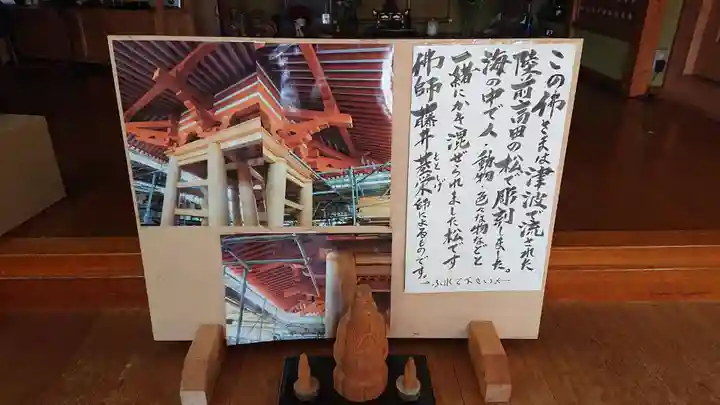 この佛さまは津波で流された
陸前高田の松で彫刻しました。
海の中で人・動物・色々な物などと
一緒にかき混ぜられました松です
佛師 藤井 師によるものです。
もとしげ
ふれて下さい